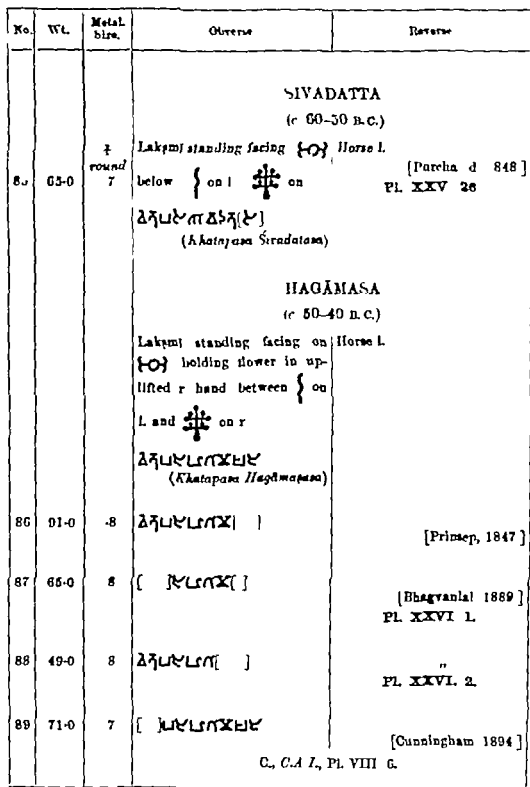 No. Wt. Metal. Size. Obverse Reverse
SIVADATTA
(c 60-50 B.C.)
Æ round 7
65-0
Lakṣmī standing facing Horse l.
below on l on
[Purcha d 848]
Pl. XXV 26
(Khatapasa Śivadatasa)
HAGĀMASA
(c 50-40 B.C.)
Lakṣmī standing facing on Horse l.
holding flower in up-
lifted r hand between on
l. and on r
(Khatapasa Hagāmaṣasa)
86 91-0 ·8
[Prinsep, 1847]
87 65-0 8
[Bhagvanlal 1889]
Pl. XXVI 1.
88 49-0 8
"
Pl. XXVI. 2.
89 71-0 7
[Cunningham 1894]
C., C.A I., Pl. VIII 6.